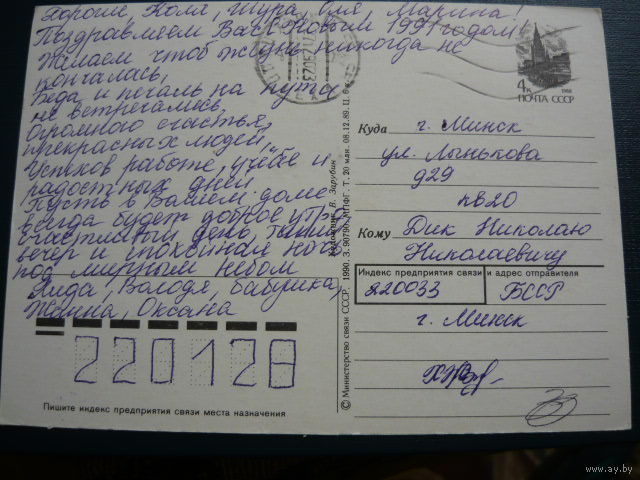 Дорогие, Коля, Шура, Оля, Марина!
Поздравляем Вас с Новым 1991 годом!
Желаем чтоб жизнь никогда не
кончалась,
Беда и печаль на пути
не встречались.
Огромного счастья,
прекрасных людей,
Успехов работе, учёбе и
радостных дней.
Пусть в Вашем доме
всегда будет доброе утро
счастливый день, тихий
вечер и спокойная ночь
под мирным небом
Аида, Володя, бабушка,
Жанна, Оксана
220128
Пишите индекс предприятия связи места назначения
© Министерство связи СССР. 1990. З. 90790. МПФГ. Т. 20 млн. 08.12.89. Ц. 6 к.
Художник В. Зарубин
4к
1988
ПОЧТА СССР
Куда г. Минск
ул. Лынькова
д29
кв20
Кому Дик Николаю
Николаевичу
Индекс предприятия связи и адрес отправителя
220033 БССР
г. Минск